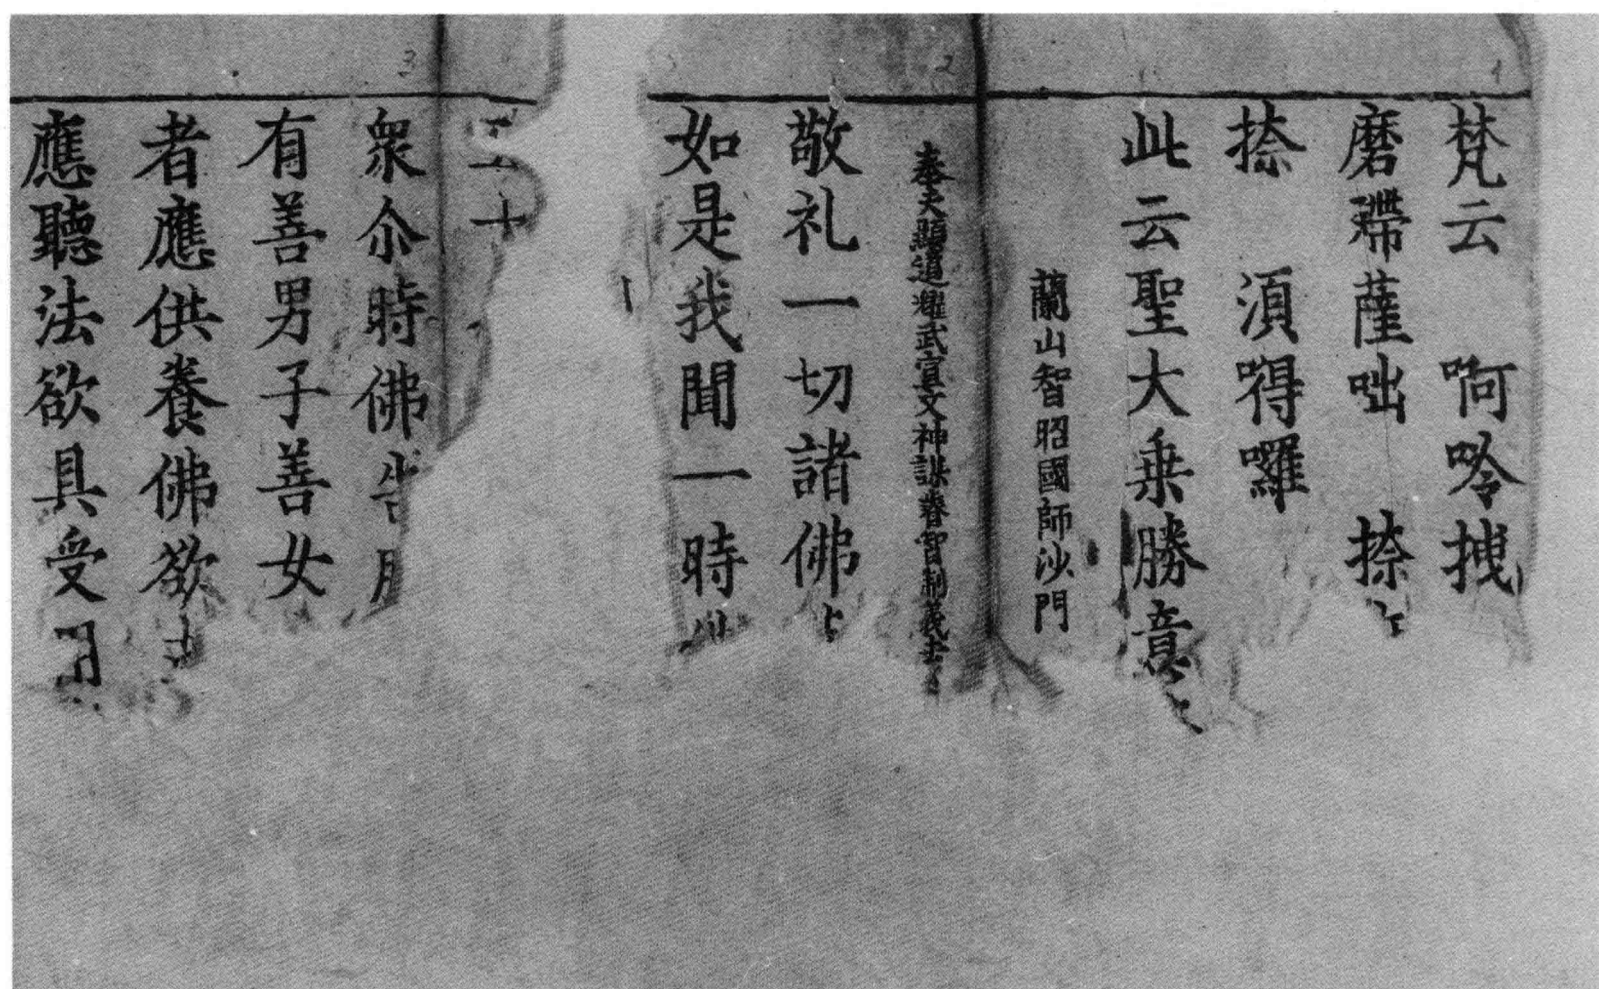 梵云　啊呤拽
磨㗣薩咄　捺
捺　湏嘚囉
此云聖大乗勝意
蘭山智昭國師沙門
奉天顯道耀武宣文神謀睿智制義去
敬礼一切諸佛
如是我聞一時
二十
衆尒時佛告
有善男子善女
者應供養佛欲
應聽法欲具受